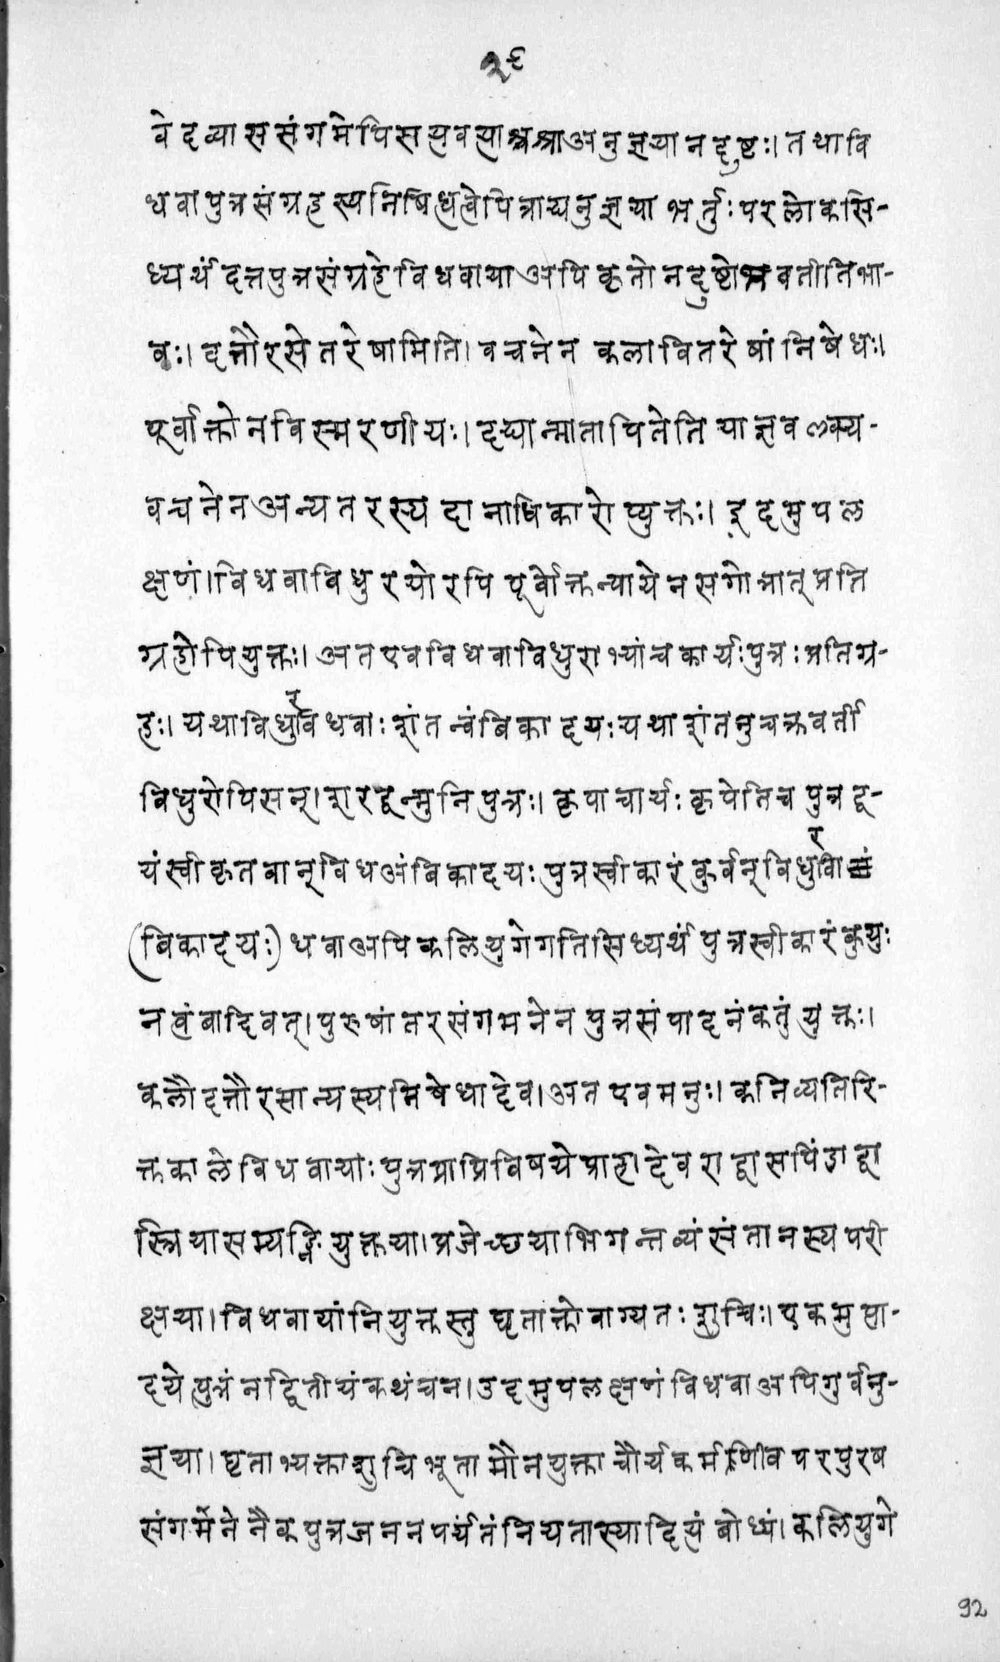 २६
वेदव्याससंगमेपिसत्यवत्याश्वश्राअनुज्ञयानदुष्टः। तथावि
धवापुत्रसंग्रहस्यनिषिधत्वेपित्राद्यनुज्ञया भर्तुः परलोकसि-
ध्यर्थं दत्तपुत्रसंग्रहेविधवाया अपि कृतो नदुष्टोभवतीतिभा-
वः। दत्तौरसेतरेषामिति। वचनेन कलावितरेषांनिषेधः।
पूर्वोक्तो नविस्मरणीयः। दद्यान्मातापितेति याज्ञवल्क्य-
वचनेनअन्यतरस्य दानाधिकारोप्युक्तः। इदमुपल
क्षणं। विधवाविधुरयोरपि पूर्वोक्तन्यायेनसगोत्रात् प्रति
ग्रहोपियुक्तः। अतएवविधवाविधुराभ्यांचकार्यः पुत्रः प्रतिग्र-
हः। यथाविधुरविधवाः शंतन्वंबिकादयः यथाशंतनुचक्रवर्ती
विधुरोपिसन्। शरद्वन्मुनिपुत्रः। कृपाचार्यः कृपेतिच पुत्रद्व-
यंस्वीकृतवान् विधअंबिकादयः पुत्रस्वीकारंकुर्वन् विधुरवि
(बिकादयः) धवाअपिकलियुगेगतिसिध्यर्थं पुत्रस्वीकारंकुयुः
नत्वंबादिवत्। पुरुषांतरसंगमनेन पुत्रसंपादनंकर्तुं युक्तः।
कलौदत्तौरसान्यस्यनिषेधादेव। अतएवमनुः। कनिव्यतिरि-
क्तकालेविधवायाः पुत्रप्राप्तिविषयेप्राह। देवराद्वासपिंडाद्वा
स्त्रियासम्यङ्नियुक्तया। प्रजेच्छयाभिगन्तव्यं संतानस्यपरी
क्षया। विधवायांनियुक्तस्तु घृताक्तोवाग्यतः शुचिः। एकमुत्पा-
दयेत्पुत्रंनद्वितीयंकथंचन। उदमुपलक्षणं विधवाअपिगुर्वनु-
ज्ञया। घृताभ्यक्ताशुचिभूतामौनयुक्ता चौर्यकर्मणिव परपुरष
संगमेनेनैकपुत्रजननपर्यंतंनियतास्यादित्यं बोध्यं। कलियुगे
92